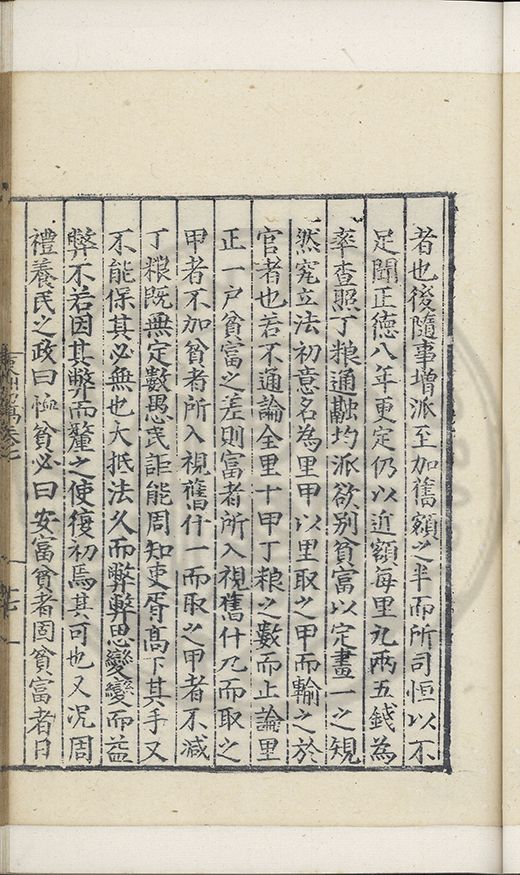 者也後隨事增派至加舊額之半而所司恒以不
足聞正德八年更定仍以近額每里九兩五錢為
率查照丁粮通融均派欲別貧富以定畫一之規
然究立法初意名為里甲以里取之甲而輸之於
官者也若不通論全里十甲丁粮之數而止論里
正一户貧富之差則富者所入視舊什九而取之
甲者不加貧者所入視舊什一而取之甲者不減
丁粮既無定數愚民詎能周知吏胥高下其手又
不能保其必無也大抵法久而弊弊思變變而益
弊不若因其弊而釐之使復初焉其可也又况周
禮養民之政曰恤貧必曰安富貧者固貧富者日